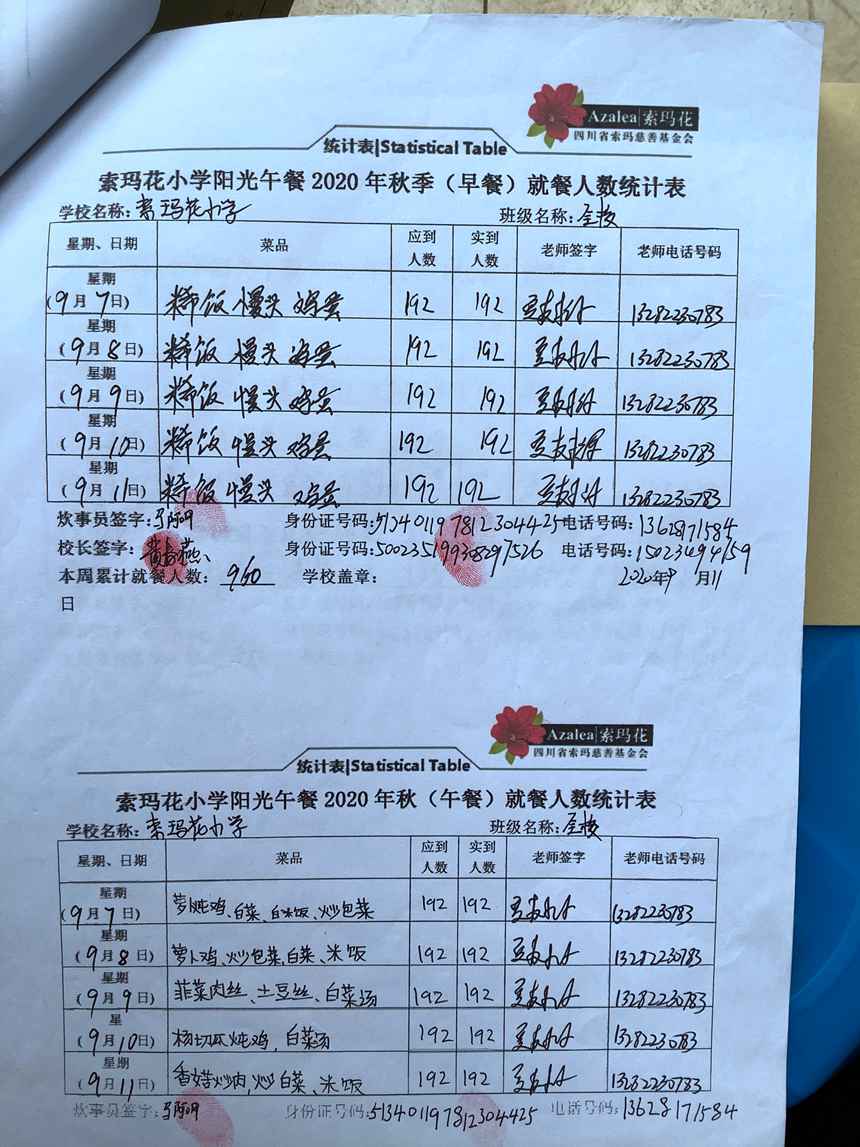 Azalea|索玛花
四川省索玛慈善基金会
统计表|Statistical Table
索玛花小学阳光午餐 2020 年秋季（早餐）就餐人数统计表
学校名称：索玛花小学 班级名称：全校
星期、日期 菜品 应到人数 实到人数 老师签字 老师电话号码
星期
(9月7日) 稀饭 馒头 鸡蛋 192 192 13282230783
星期
(9月8日) 稀饭 馒头 鸡蛋 192 192 13282230783
星期
(9月9日) 稀饭 馒头 鸡蛋 192 192 13282230783
星期
(9月10日) 稀饭 馒头 鸡蛋 192 192 13282230783
星期
(9月11日) 稀饭 馒头 鸡蛋 192 192 13282230783
炊事员签字： 身份证号码:513401197812304425 电话号码:13628171584
校长签字： 身份证号码: 电话号码:15023494159
本周累计就餐人数：960 学校盖章： 2020年9月11
日
Azalea|索玛花
四川省索玛慈善基金会
统计表|Statistical Table
索玛花小学阳光午餐 2020 年秋（午餐）就餐人数统计表
学校名称：索玛花小学 班级名称：全校
星期、日期 菜品 应到人数 实到人数 老师签字 老师电话号码
星期
(9月7日) 炖鸡、白菜、白米饭、炒包菜 192 192 13282230783
星期
(9月8日) 萝卜鸡、炒包菜、白菜、米饭 192 192 13282230783
星期
(9月9日) 韭菜肉丝、土豆丝、白菜汤 192 192 13282230783
星
(9月10日) 炖鸡、白菜汤 192 192 13282230783
星期
(9月11日) 香菇炒肉、炒白菜、米饭 192 192 13282230783
炊事员签字： 身份证号码:513401197812304425 电话号码:13628171584